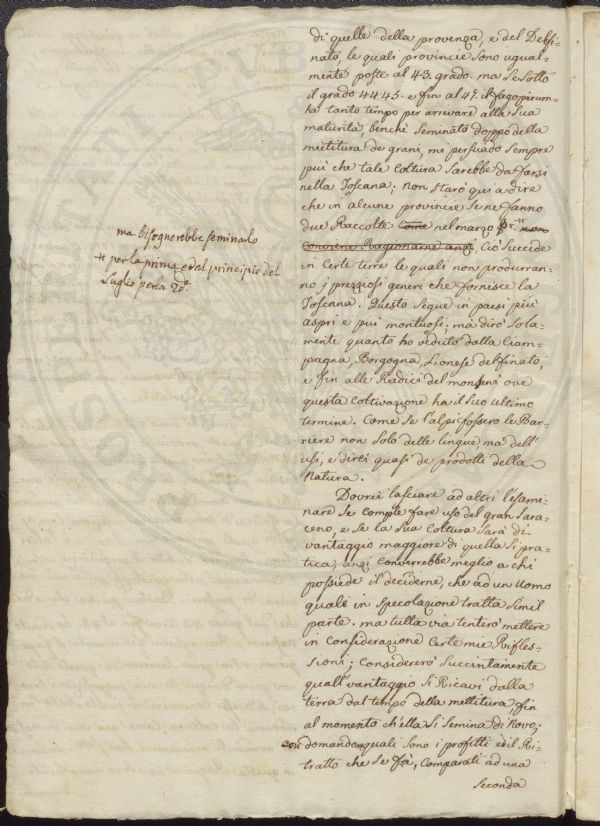 di quelle della provenza, e del Delfi-
nato, le quali provincie sono ugual-
mente poste al 43. grado. ma se sotto
il grado 44 45. e fin al 47. il fagopirum
ha tanto tempo per arrivare alla sua
maturità, benche seminato doppo della
mietitura de grani, mi persuado sempre
più che tale Coltura sarebbe da farsi
nella Toscana; non starò qui a dire
che in alcune provincie se ne fanno
due Raccolte Come nel marzo
Conviene Ragionarne anzi, Ciò succede
in Certe terre le quali non produrran-
no i prezziosi generi che fornisce la
Toscana. Questo segue in paesi più
aspri e più montuosi; ma dirò sola-
mente quanto ho veduto dalla Ciam-
pagna, Borgogna, Lionese delfinato,
e fin alle Radici del monsenis ove
questa Coltivazione ha il suo ultimo
termine. Come se l'alpi fossero le Bar-
riere non solo delle lingue, ma dell'
usi, e direi quasi de prodotti della
Natura.
Dovrei lasciare ad altri l'esami-
nare se compte fare uso del gran sara-
ceno, e se la sua Coltura sarà di
vantaggio maggiore di quella si pra-
tica, anzi Converrebbe meglio a chi
possiede il deciderne, che ad un Uomo
quale in specolazione tratta simil
parte. ma tutta via tenterò mettere
in Considerazione Certe mie Rifles-
sioni; Considererò succintamente
quall'vantaggio si Ricavi dalla
terra dal tempo della mettitura, fin
al momento ch'ella si semina di novo;
con domandon quali sono i profitti ed il Ri-
tratto che se fà, Comparati ad una
seconda
ma bisognerebbe seminarlo
per la prima e dal principio del
Luglio per la 2da.